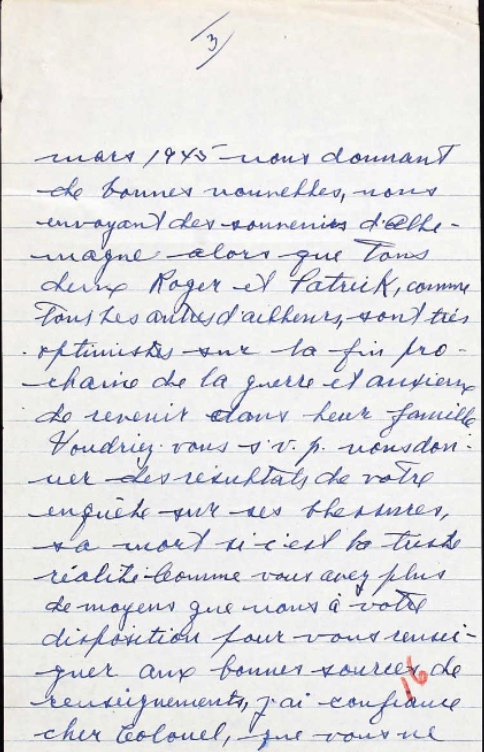 3
mars 1945 nous donnant
de bonnes nouvelles, nous
envoyant des souvenirs d'Alle-
magne alors que tous
deux Roger et Patrick, comme
tous les autres d'ailleurs, sont très
optimistes sur la fin pro-
chaine de la guerre et anxieux
de revenir dans leur famille
Voudriez-vous s.v.p. nous don-
ner des résultats de votre
enquête sur ses blessures,
sa mort si c'est la triste
réalité comme vous avez plus
de moyens que nous à votre
disposition pour vous rensei-
gner aux bonnes sources de
renseignements, j'ai confiance
cher Colonel, que vous ne
16